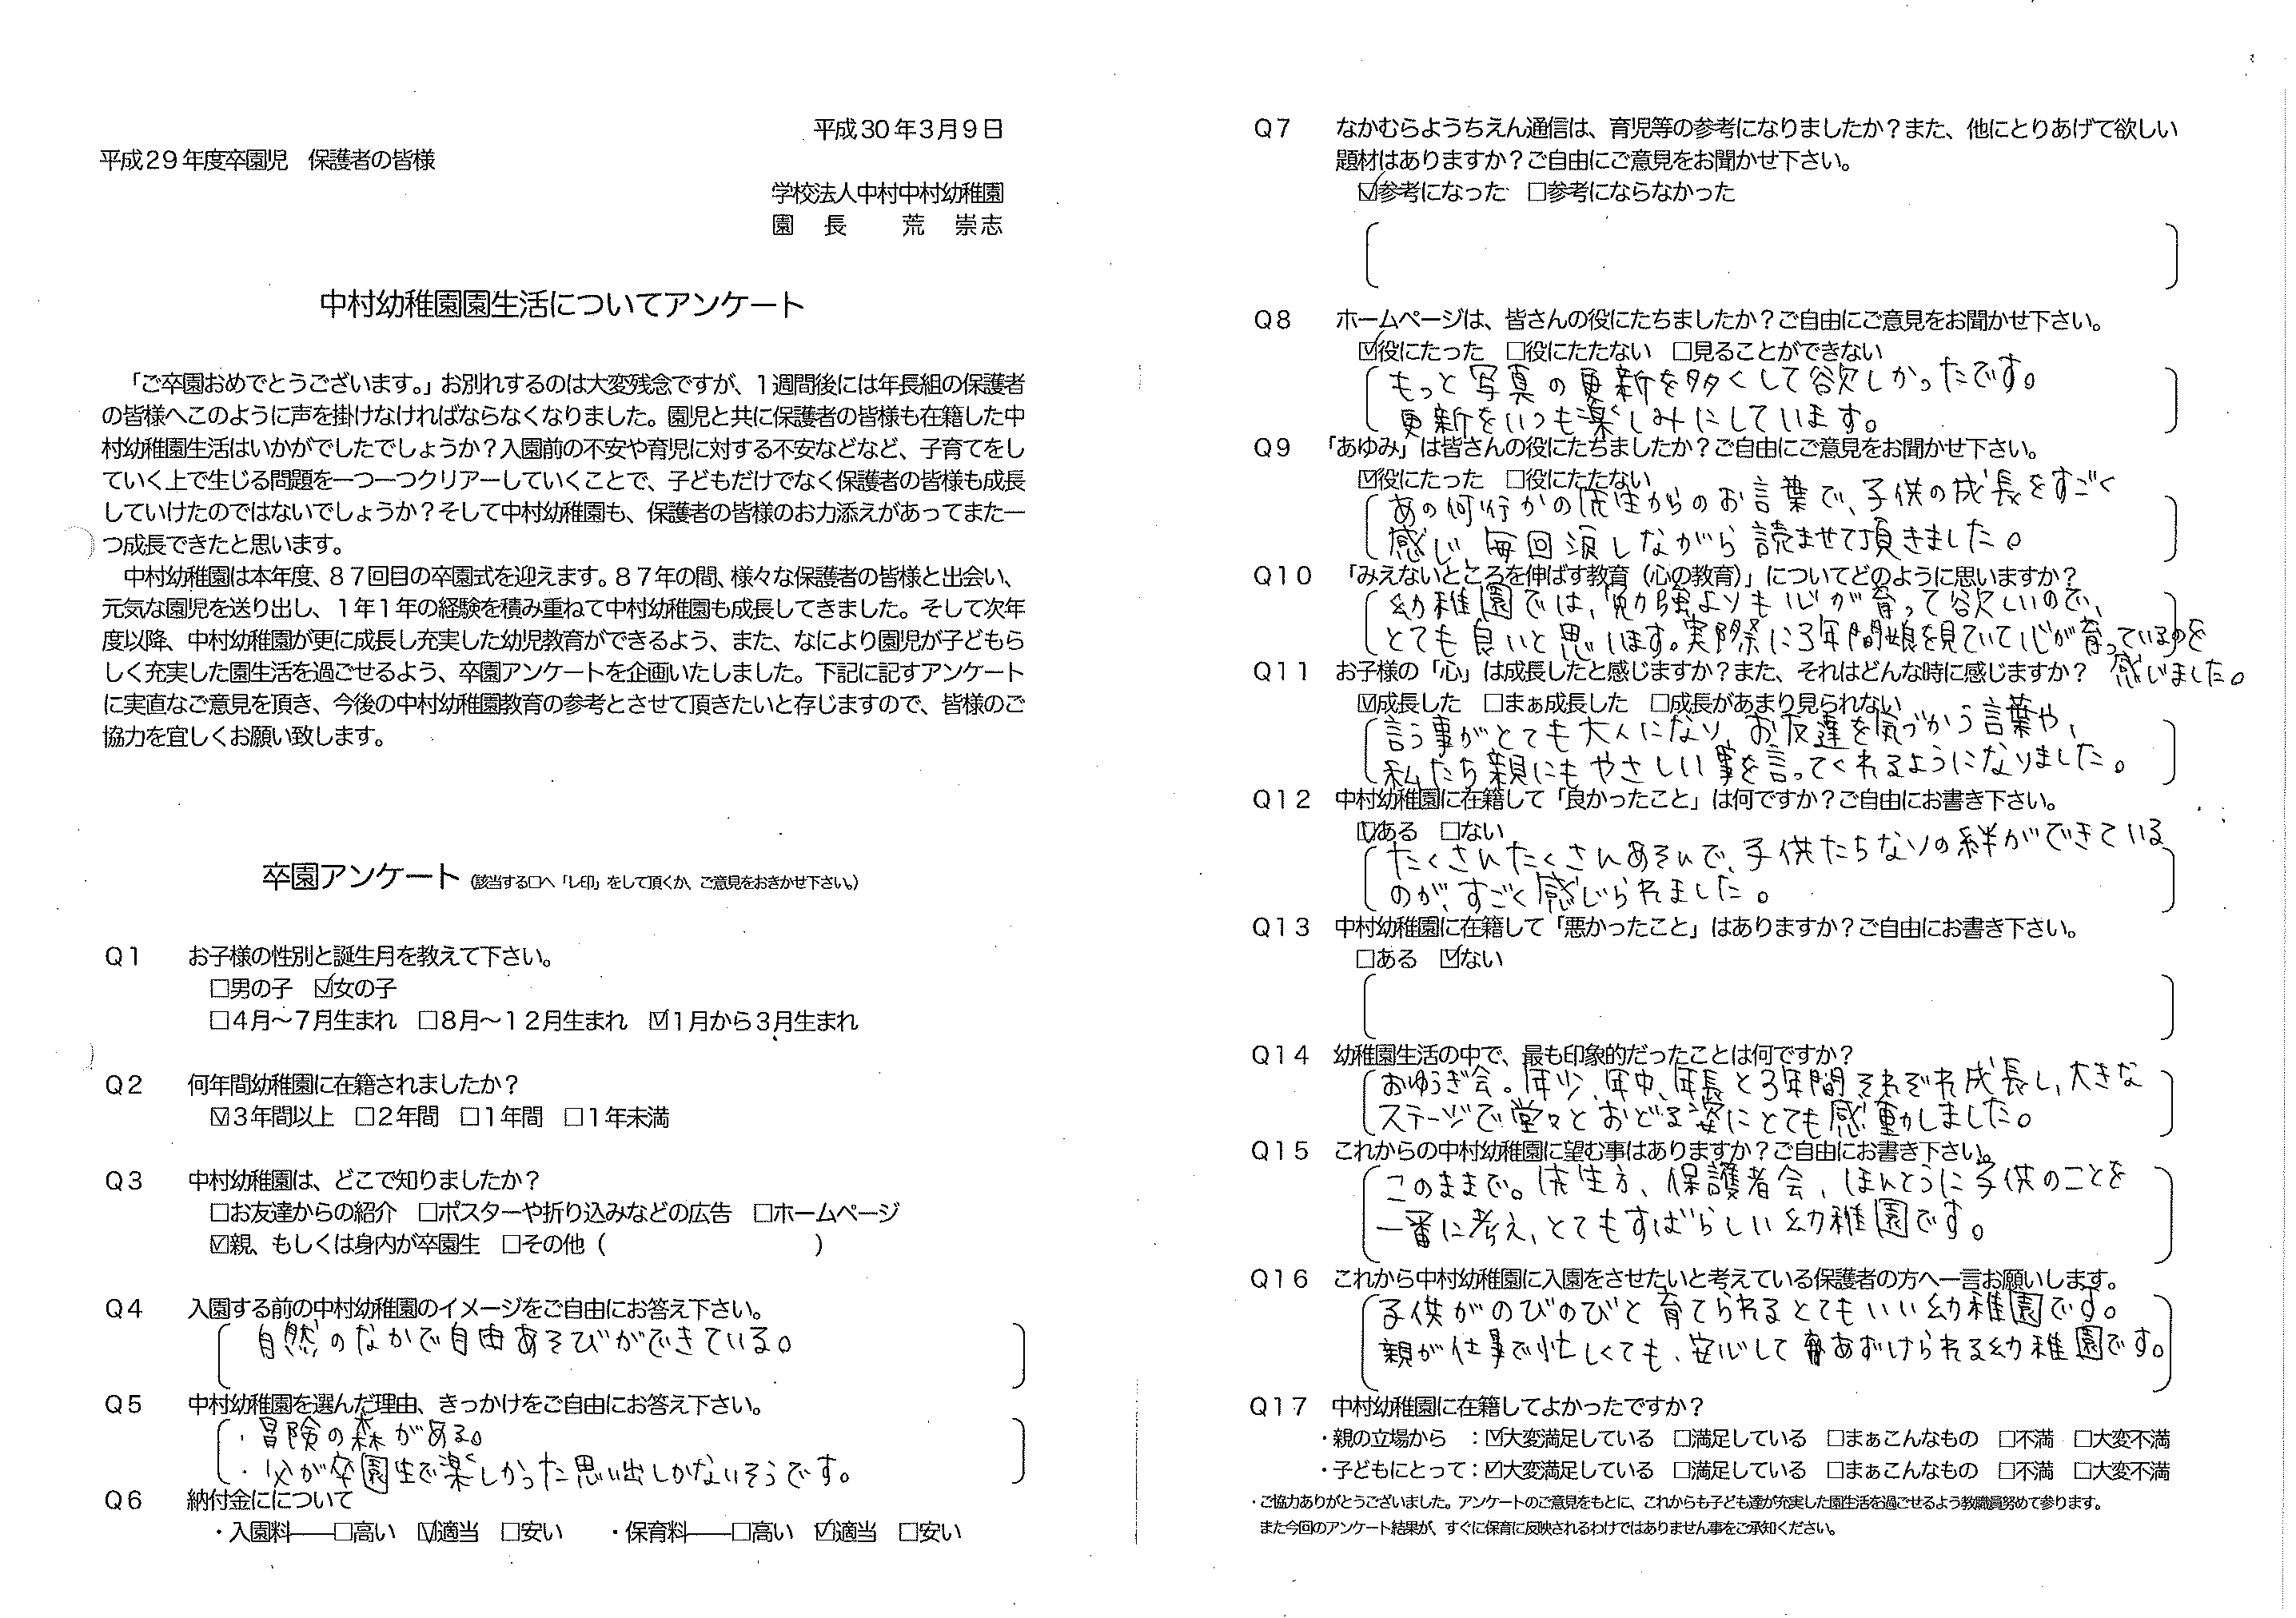 平成30年3月9日
平成29年度卒園児　保護者の皆様
学校法人中村中村幼稚園
園　長　　荒　崇志
中村幼稚園園生活についてアンケート
「ご卒園おめでとうございます。」お別れするのは大変残念ですが、1週間後には年長組の保護者
の皆様へこのように声を掛けなければならなくなりました。園児と共に保護者の皆様も在籍した中
村幼稚園生活はいかがでしたでしょうか？入園前の不安や育児に対する不安などなど、子育てをし
ていく上で生じる問題を一つ一つクリアーしていくことで、子どもだけでなく保護者の皆様も成長
していけたのではないでしょうか？そして中村幼稚園も、保護者の皆様のお力添えがあってまた一
つ成長できたと思います。
中村幼稚園は本年度、87回目の卒園式を迎えます。87年の間、様々な保護者の皆様と出会い、
元気な園児を送り出し、1年1年の経験を積み重ねて中村幼稚園も成長してきました。そして次年
度以降、中村幼稚園が更に成長し充実した幼児教育ができるよう、また、なにより園児が子どもら
しく充実した園生活を過ごせるよう、卒園アンケートを企画いたしました。下記に記すアンケート
に実直なご意見を頂き、今後の中村幼稚園教育の参考とさせて頂きたいと存じますので、皆様のご
協力を宜しくお願い致します。
卒園アンケート（該当する□へ「レ印」をして頂くか、ご意見をおきかせ下さい。）
Q1　お子様の性別と誕生月を教えて下さい。
□男の子　☑女の子
□4月～7月生まれ　□8月～12月生まれ　☑1月から3月生まれ
Q2　何年間幼稚園に在籍されましたか？
☑3年間以上　□2年間　□1年間　□1年未満
Q3　中村幼稚園は、どこで知りましたか？
□お友達からの紹介　□ポスターや折り込みなどの広告　□ホームページ
☑親、もしくは身内が卒園生　□その他（　　　　　　　　　）
Q4　入園する前の中村幼稚園のイメージをご自由にお答え下さい。
自然のなかで自由あそびができている。
Q5　中村幼稚園を選んだ理由、きっかけをご自由にお答え下さい。
・冒険の森がある。
・父が卒園生で楽しかった思い出しかないそうです。
Q6　納付金にについて
・入園料――□高い　☑適当　□安い　　・保育料――□高い　☑適当　□安い
Q7　なかむらようちえん通信は、育児等の参考になりましたか？また、他にとりあげて欲しい
題材はありますか？ご自由にご意見をお聞かせ下さい。
☑参考になった　□参考にならなかった
Q8　ホームページは、皆さんの役にたちましたか？ご自由にご意見をお聞かせ下さい。
☑役にたった　□役にたたない　□見ることができない
もっと写真の更新を多くして欲しかったです。
更新をいつも楽しみにしています。
Q9　「あゆみ」は皆さんの役にたちましたか？ご自由にご意見をお聞かせ下さい。
☑役にたった　□役にたたない
あの何行かの先生からのお言葉で、子供の成長をすごく
感じ、毎回涙しながら読ませて頂きました。
Q10　「みえないところを伸ばす教育（心の教育）」についてどのように思いますか？
幼稚園では、勉強よりも心が育って欲しいので、
とても良いと思います。実際に3年間娘を見ていて心が育っているのを
感じました。
Q11　お子様の「心」は成長したと感じますか？また、それはどんな時に感じますか？
☑成長した　□まぁ成長した　□成長があまり見られない
言う事がとても大人になり、お友達を気づかう言葉や、
私たち親にもやさしい事を言ってくれるようになりました。
Q12　中村幼稚園に在籍して「良かったこと」は何ですか？ご自由にお書き下さい。
☑ある　□ない
たくさんたくさんあそんで、子供たちなりの絆ができている
のが、すごく感じられました。
Q13　中村幼稚園に在籍して「悪かったこと」はありますか？ご自由にお書き下さい。
□ある　☑ない
Q14　幼稚園生活の中で、最も印象的だったことは何ですか？
おゆうぎ会。年少、年中、年長と3年間それぞれ成長し、大きな
ステージで堂々とおどる姿にとても感動しました。
Q15　これからの中村幼稚園に望む事はありますか？ご自由にお書き下さい。
このままで。先生方、保護者会、ほんとうに子供のことを
一番に考え、とてもすばらしい幼稚園です。
Q16　これから中村幼稚園に入園をさせたいと考えている保護者の方へ一言お願いします。
子供がのびのびと育てられるとてもいい幼稚園です。
親が仕事で忙しくても、安心してあずけられる幼稚園です。
Q17　中村幼稚園に在籍してよかったですか？
・親の立場から　：☑大変満足している　□満足している　□まぁこんなもの　□不満　□大変不満
・子どもにとって：☑大変満足している　□満足している　□まぁこんなもの　□不満　□大変不満
・ご協力ありがとうございました。アンケートのご意見をもとに、これからも子ども達が充実した園生活を過ごせるよう教職員努めて参ります。
また今回のアンケート結果が、すぐに保育に反映されるわけではありません事をご承知ください。